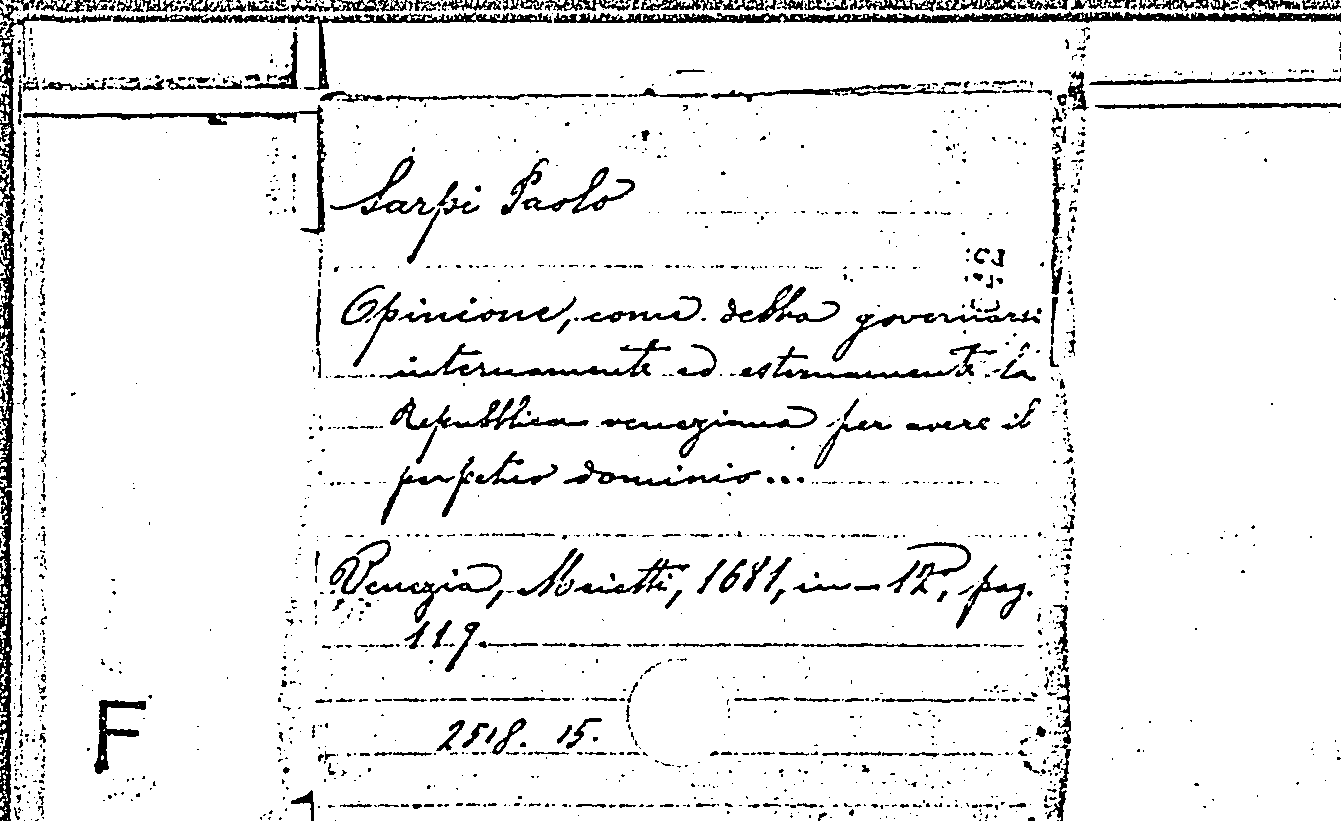 Sarpi Paolo
Opinione, come debba governarsi
internamente ed esternamente la
Repubblica veneziana per avere il
perpetuo dominio...
Venezia, Meietti, 1681, in-12°, pag.
119.
2518. 15.
F